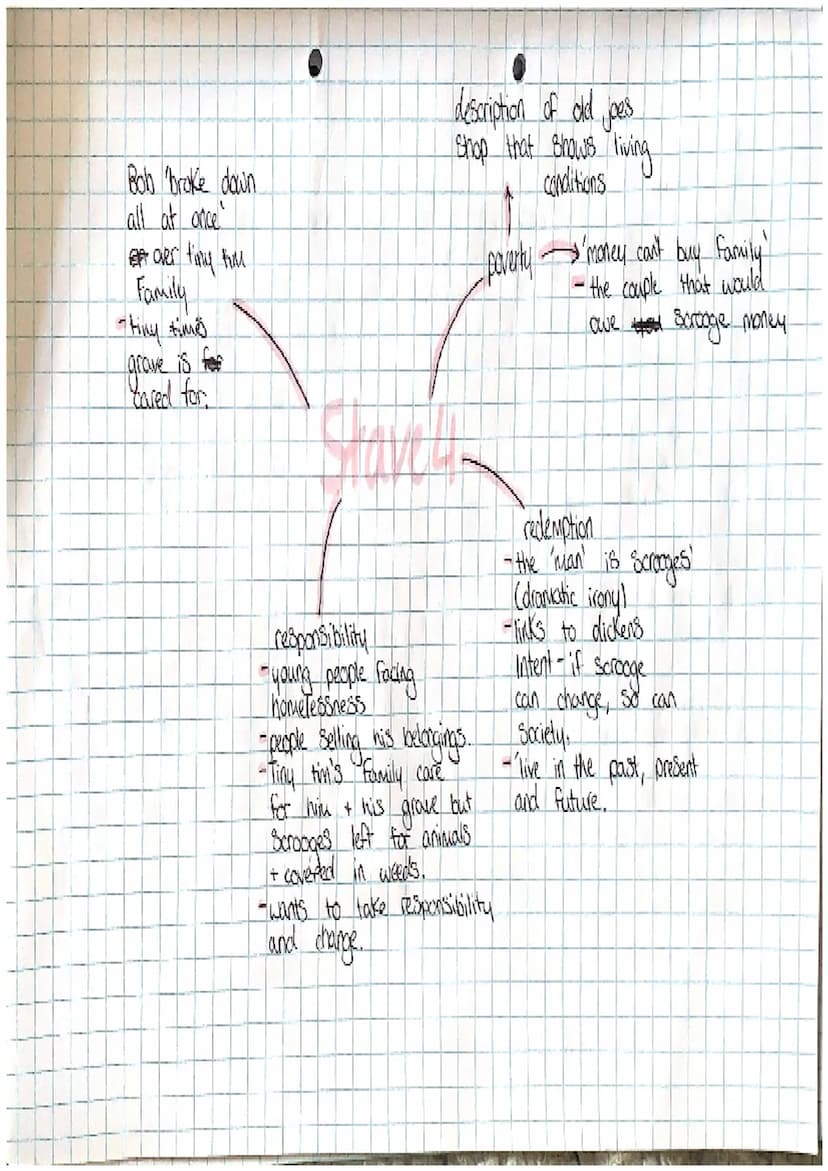 description of old joes
shop that shows living
conditions
Bob 'broke down
all at once'
over tiny tim
Family
- tiny tims
grave is
cared for.
poverty
'money can't buy family'
- the couple that would
owe scrooge money
Stave 4
redemption
- the 'man' is scrooges'
(dramatic irony)
- links to dickens
intent - if scrooge
can change, so can
society.
- 'live in the past, present
and future.
responsibility
- young people facing
homelessness
- people selling his belongings.
- Tiny tim's family care
for him + his grave but
scrooges left for animals
+ covered in weeds.
- wants to take responsibility
and change.